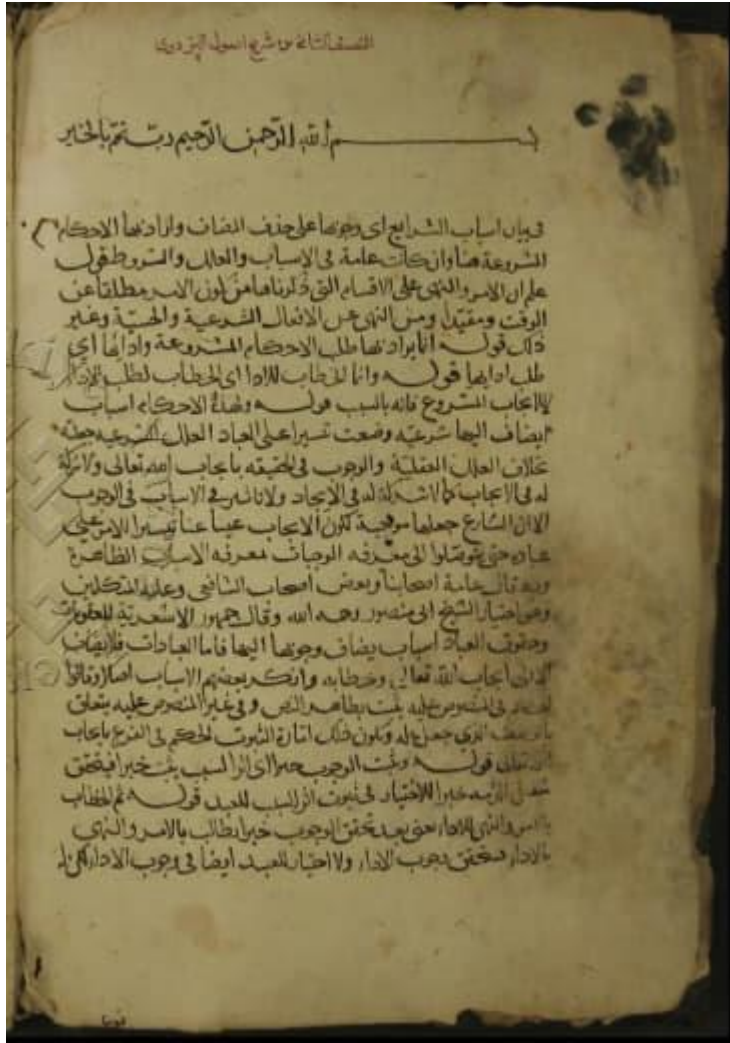 النصف الثاني من شرح اصول البزدوي
بسم الله الرحمن الرحيم رب تمم بالخير
في بيان اسباب الشرايع اى وجوبها على حذف المضاف واراد بها الاحكام
المشروعة هنا وان كانت عامة في الاسباب والعلل والشروط قوله
علم ان الامر والنهى على الاقسام التي ذكرناها من كون الامر مطلقا عن
الوقت ومقيدا ومن النهى عن الافعال الشرعية والحسية وغير
ذلك قوله انما يراد بها طلب الاحكام المشروعة وادائها اي
طلب ادايها قوله وانما الخطاب للادا اى الخطاب لطلب الاداء
لا لايجاب المشروع فانه بالسبب قوله ولهذه الاحكام اسباب
يضاف اليها شرعيه وضعت تيسيرا على العباد العلل الشرعيه
بخلاف العلل العقلية والوجوب في الحقيقه بايجاب الله تعالى ولا شركة
له في الايجاب كما لا شركة له في الايجاد ولا تاثير في الاسباب في الوجوب
الا ان الشارع جعلها موجبة لكون الايجاب غيبا عنا تيسيرا للامر على
عباده حتى يتوصلوا الى معرفه الوجبات بمعرفه الاسباب الظاهرة
وبه قال عامة اصحابنا وبعض اصحاب الشافعى وعامة المتكلمين
وهو اختيار الشيخ ابى منصور رحمه الله وقال جمهور الاشعرية للعقوبات
وحقوق العباد اسباب يضاف وجوبها اليها فاما العبادات فلا يضاف
الا الى ايجاب الله تعالى وخطابه وانكر بعضهم الاسباب اصلا وقالوا
الحكم في المنصوص عليه يثبت بظاهر النص وفي غير المنصوص عليه يتعلق
بالوصف الذى جعل له ويكون ذلك امارة لثبوت الحكم في الفرع بايجاب
الله تعالى قوله ويثبت الوجوب جبرا اى اثر السبب يثبت جبرا فيتحقق
جبرا لا اختيار في ثبوت اثر السبب للعبد قوله ثم الخطاب
بالامر والنهى للاداء يعنى بعد تحقق الوجوب جبرا يطالب بالامر والنهى
بالاداء فيتحقق وجوب الاداء ولا اختيار للعبد ايضا في وجوب الاداء لكن له